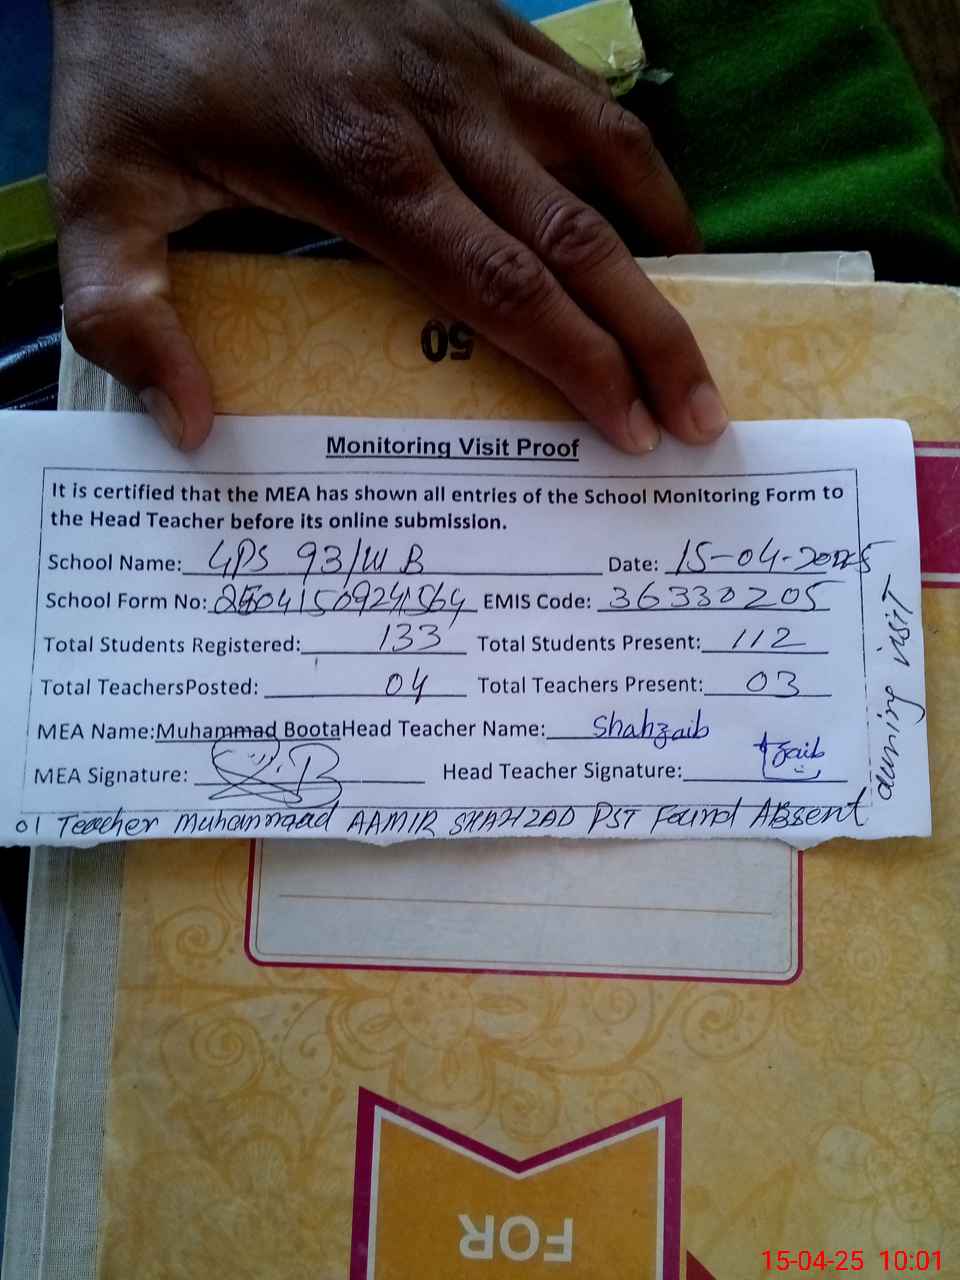 50
Monitoring Visit Proof
It is certified that the MEA has shown all entries of the School Monitoring Form to
the Head Teacher before its online submission.
School Name: GPS 93/WB Date: 15-04-2025
School Form No: EMIS Code: 36330205
Total Students Registered: 133 Total Students Present: 112
Total TeachersPosted: 04 Total Teachers Present: 03
MEA Name:Muhammad BootaHead Teacher Name: Shahzaib
MEA Signature: Head Teacher Signature: zaib
01 Teacher Muhammad AAMIR SHAHZAD PST Found ABsent
during visit
FOR
15-04-25 10:01